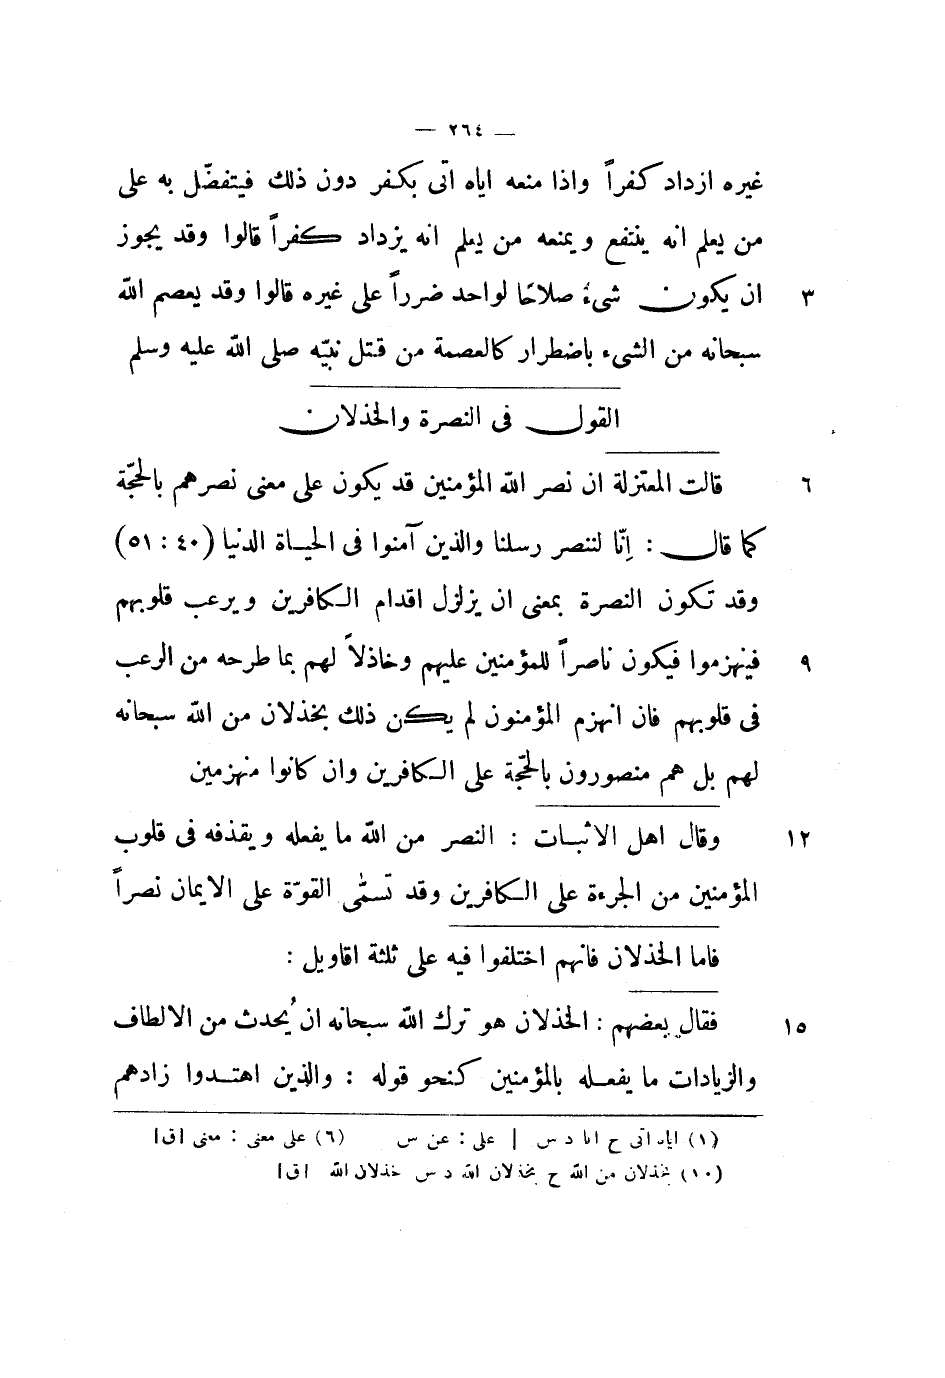 — ٢٦٤ —
غيره ازداد كفراً واذا منعه اياه اتى بكفر دون ذلك فيتفضّل به على
من يعلم انه ينتفع ويمنعه من يعلم انه يزداد كفراً قالوا وقد يجوز
٣ ان يكون شىءٌ صلاحًا لواحد ضرراً على غيره قالوا وقد يعصم الله
سبحانه من الشىء باضطرار كالعصمة من قتل نبيّه صلى الله عليه وسلم
القول فى النصرة والخذلان
٦ قالت المعتزلة ان نصر الله المؤمنين قد يكون على معنى نصرهم بالحجّة
كما قال : إنّا لننصر رسلنا والذين آمنوا فى الحياة الدنيا (٤٠ : ٥١)
وقد تكون النصرة بمعنى ان يزلزل اقدام الكافرين ويرعب قلوبهم
٩ فينهزموا فيكون ناصراً للمؤمنين عليهم وخاذلاً لهم بما طرحه من الرعب
فى قلوبهم فان انهزم المؤمنون لم يكن ذلك بخذلان من الله سبحانه
لهم بل هم منصورون بالحجّة على الكافرين وان كانوا منهزمين
١٢ وقال اهل الاثبات : النصر من الله ما يفعله ويقذفه فى قلوب
المؤمنين من الجرءة على الكافرين وقد تسمّى القوّة على الايمان نصراً
فاما الخذلان فانهم اختلفوا فيه على ثلثة اقاويل :
١٥ فقال بعضهم : الخذلان هو ترك الله سبحانه ان يُحدث من الالطاف
والزيادات ما يفعله بالمؤمنين كنحو قوله : والذين اهتدوا زادهم
(١) اياه اتى ح انا د س | على : عن س (٦) على معنى : معنى [ق]
(١٠) بخذلان من الله ح بخذلان الله د س خذلان الله [ق]